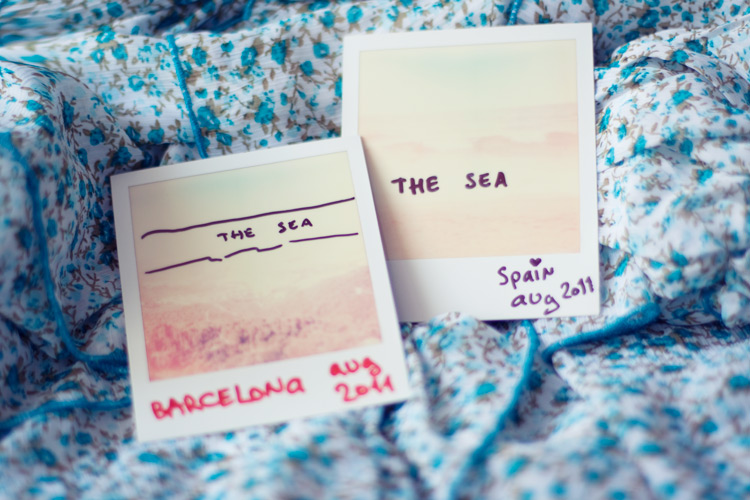 THE SEA
BARCELONA aug
2011
THE SEA
Spain
aug 2011